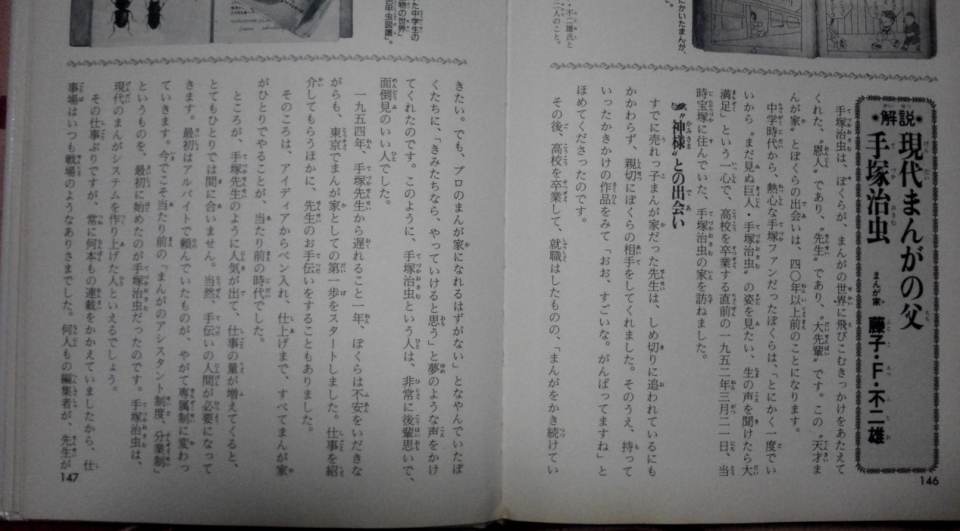 にかいたまんが、
・不二雄氏と
二人のこと。
解説
現代まんがの父
手塚治虫
まんが家 藤子・F・不二雄
手塚治虫は、ぼくらが、まんがの世界に飛びこむきっかけをあたえて
くれた、“恩人”であり、“先生”であり、“大先輩”です。この“天才ま
んが家”とぼくらの出会いは、四〇年以上前のことになります。
中学時代から、熱心な手塚ファンだったぼくらは、「とにかく一度でい
いから、“まだ見ぬ巨人・手塚治虫”の姿を見たい、生の声を聞けたら大
満足」という一心で、高校を卒業する直前の一九五二年三月二一日、当
時宝塚に住んでいた、手塚治虫の家を訪ねました。
“神様”との出会い
すでに売れっ子まんが家だった先生は、しめ切りに追われているにも
かかわらず、親切にぼくらの相手をしてくれました。そのうえ、持って
いったかきかけの作品をみて「おお、すごいな。がんばってますね」と
ほめてくださったのです。
その後、高校を卒業して、就職はしたものの、「まんがをかき続けてい
146
た中学生の
物の世界」
甲虫図譜」。
きたい。でも、プロのまんが家になれるはずがない」となやんでいたぼ
くたちに、「きみたちなら、やっていけると思う」と夢のような声をかけ
てくれたのです。このように、手塚治虫という人は、非常に後輩思いで、
面倒見のいい人でした。
一九五四年、手塚先生から遅れること一年、ぼくらは不安をいだきな
がらも、東京でまんが家としての第一歩をスタートしました。仕事を紹
介してもらうほかに、先生のお手伝いをすることもありました。
そのころは、アイディアからペン入れ、仕上げまで、すべてまんが家
がひとりでやることが、当たり前の時代でした。
ところが、手塚先生のように人気が出て、仕事の量が増えてくると、
とてもひとりでは間に合いません。当然、手伝いの人間が必要になって
きます。最初はアルバイトで頼んでいたものが、やがて専属制に変わっ
ていきます。今でこそ当たり前の「まんがのアシスタント制度、分業制」
というものを、最初に始めたのが手塚治虫だったのです。手塚治虫は、
現代のまんがシステムを作り上げた人といえるでしょう。
その仕事ぶりですが、常に何本もの連載をかかえていましたから、仕
事場はいつも戦場のようなありさまでした。何人もの編集者が、先生が
147